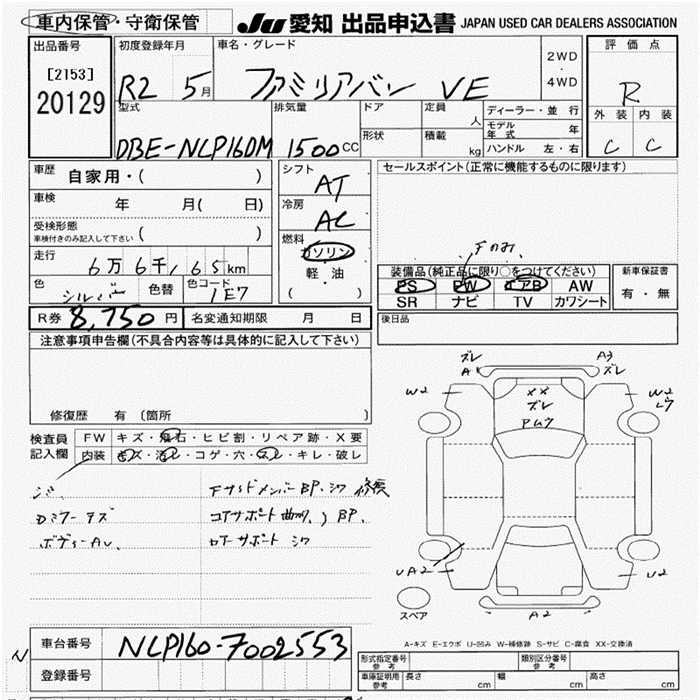 車内保管・守衛保管 JU 愛知 出品申込書 JAPAN USED CAR DEALERS ASSOCIATION
出品番号 初度登録年月 車名・グレード 2WD・4WD 評価点
[2153] R2 5月 ファミリアバン VE R
20129 型式 排気量 ドア 定員 人 ディーラー・並行 外装 内装
モデル年式 年
DBE-NLP160M 1500CC 形状 積載 kg ハンドル 左・右 C C
車歴 自家用・( ) シフト AT セールスポイント(正常に機能するものに限ります)
車検 年 月( 日) 冷房 AC
受検形態
車検付きのみ記入して下さい ( )
走行 6万6千165km 燃料 ガソリン 軽・油 ( )
装備品(純正品に限り○をつけてください) 新車保証書
色 シルバー 色替 色コード 1E7 PS PW エアB AW 有・無
SR ナビ TV カワシート
R券 8,750円 名変通知期限 月 日 後日品
注意事項申告欄(不具合内容等は具体的に記入して下さい)
修復歴 有 (箇所 )
ズレ A1 A3 ズレ
W2 XX ズレ W2
検査員記入欄 FW キズ・飛石・ヒビ割・リペア跡・X要
内装 キズ・汚レ・コゲ・穴・スレ・キレ・破レ
FサイドメンバーBP.シワ 修復
Dミラーキズ コアサポート曲り, BP.
ボディーAU. ロアサポート シワ
UA2 U2
スペア A2
A-キズ E-エクボ U-凹み W-補修跡 S-サビ C-腐食 XX-交換済
N 車台番号 NLP160-7002553
登録番号
形式指定番号 参考 類別区分番号 参考
車庫証明用 参考 長さ cm 幅 cm 高さ cm